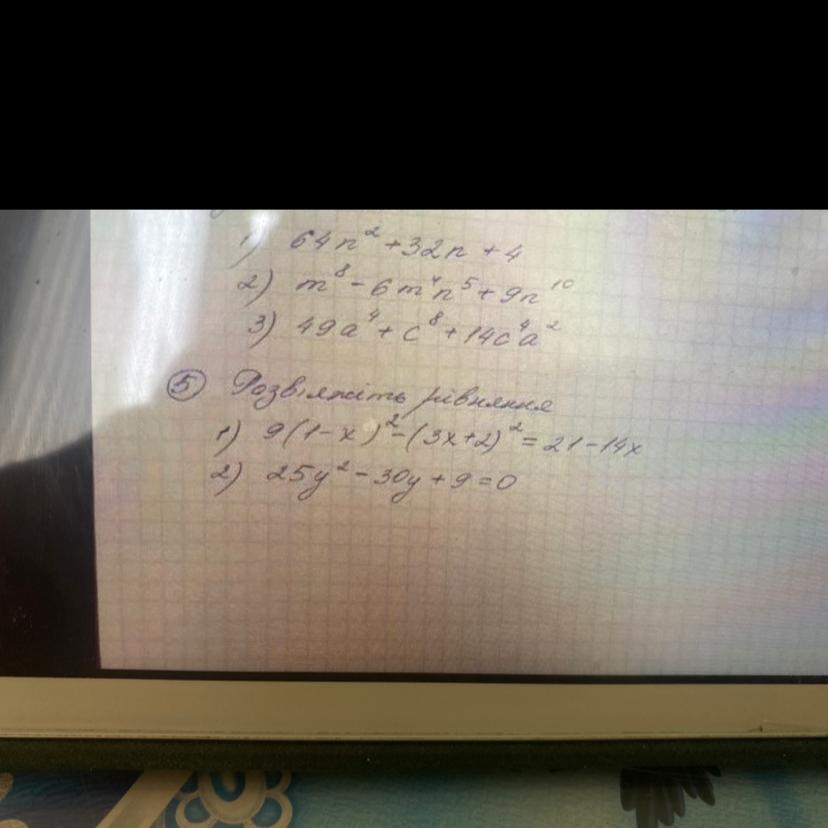 1) 64n² + 32n + 4
2) m⁸ - 6m⁴n⁵ + 9n¹⁰
3) 49a⁴ + c⁸ + 14c⁴a²
⑤ Розв'яжіть рівняння
1) 9(1-x)² - (3x+2)² = 21 - 14x
2) 25y² - 30y + 9 = 0